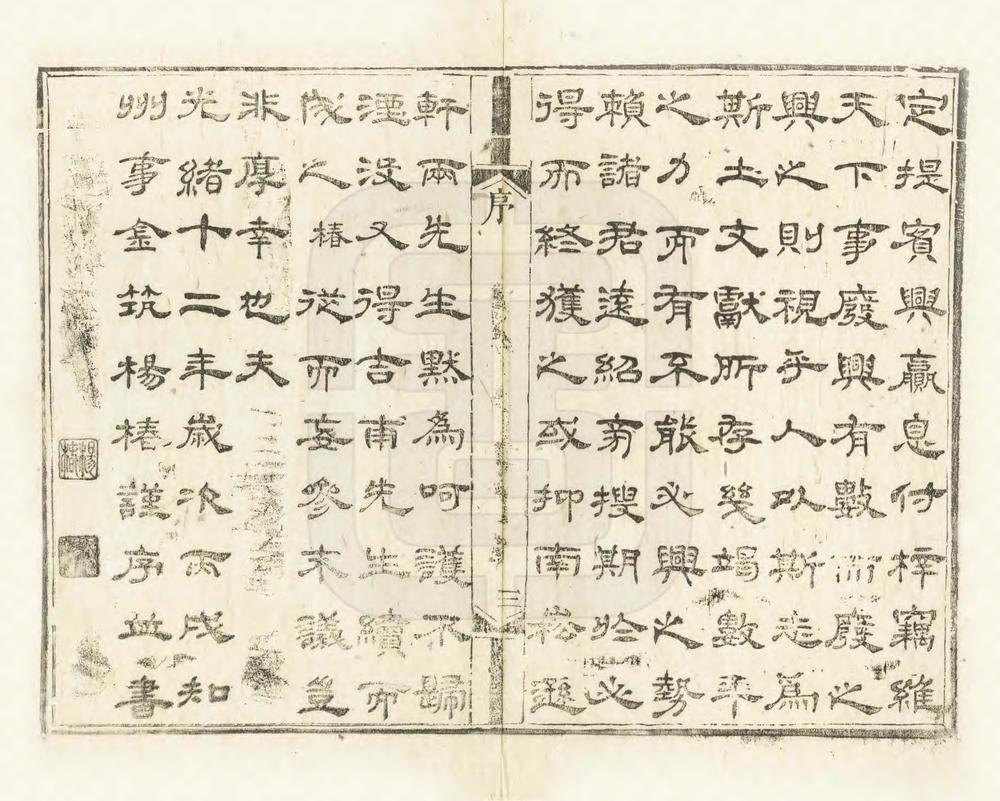 定提賓興贏息付梓竊維
天下事廢興有數而廢之
興之則視乎人以斯志爲
斯土文獻所存幾竭數年
之力而有不能必興之勢
賴諸君遠紹旁搜期於必
得而終獲之或抑南崧遜
序
三
軒兩先生默爲呵護不歸
湮没又得吉甫先生續而
成之椿從而妄參末議豈
非厚幸也夫
光緒十二年歲次丙戌知
州事金筑楊椿謹序並書
楊椿